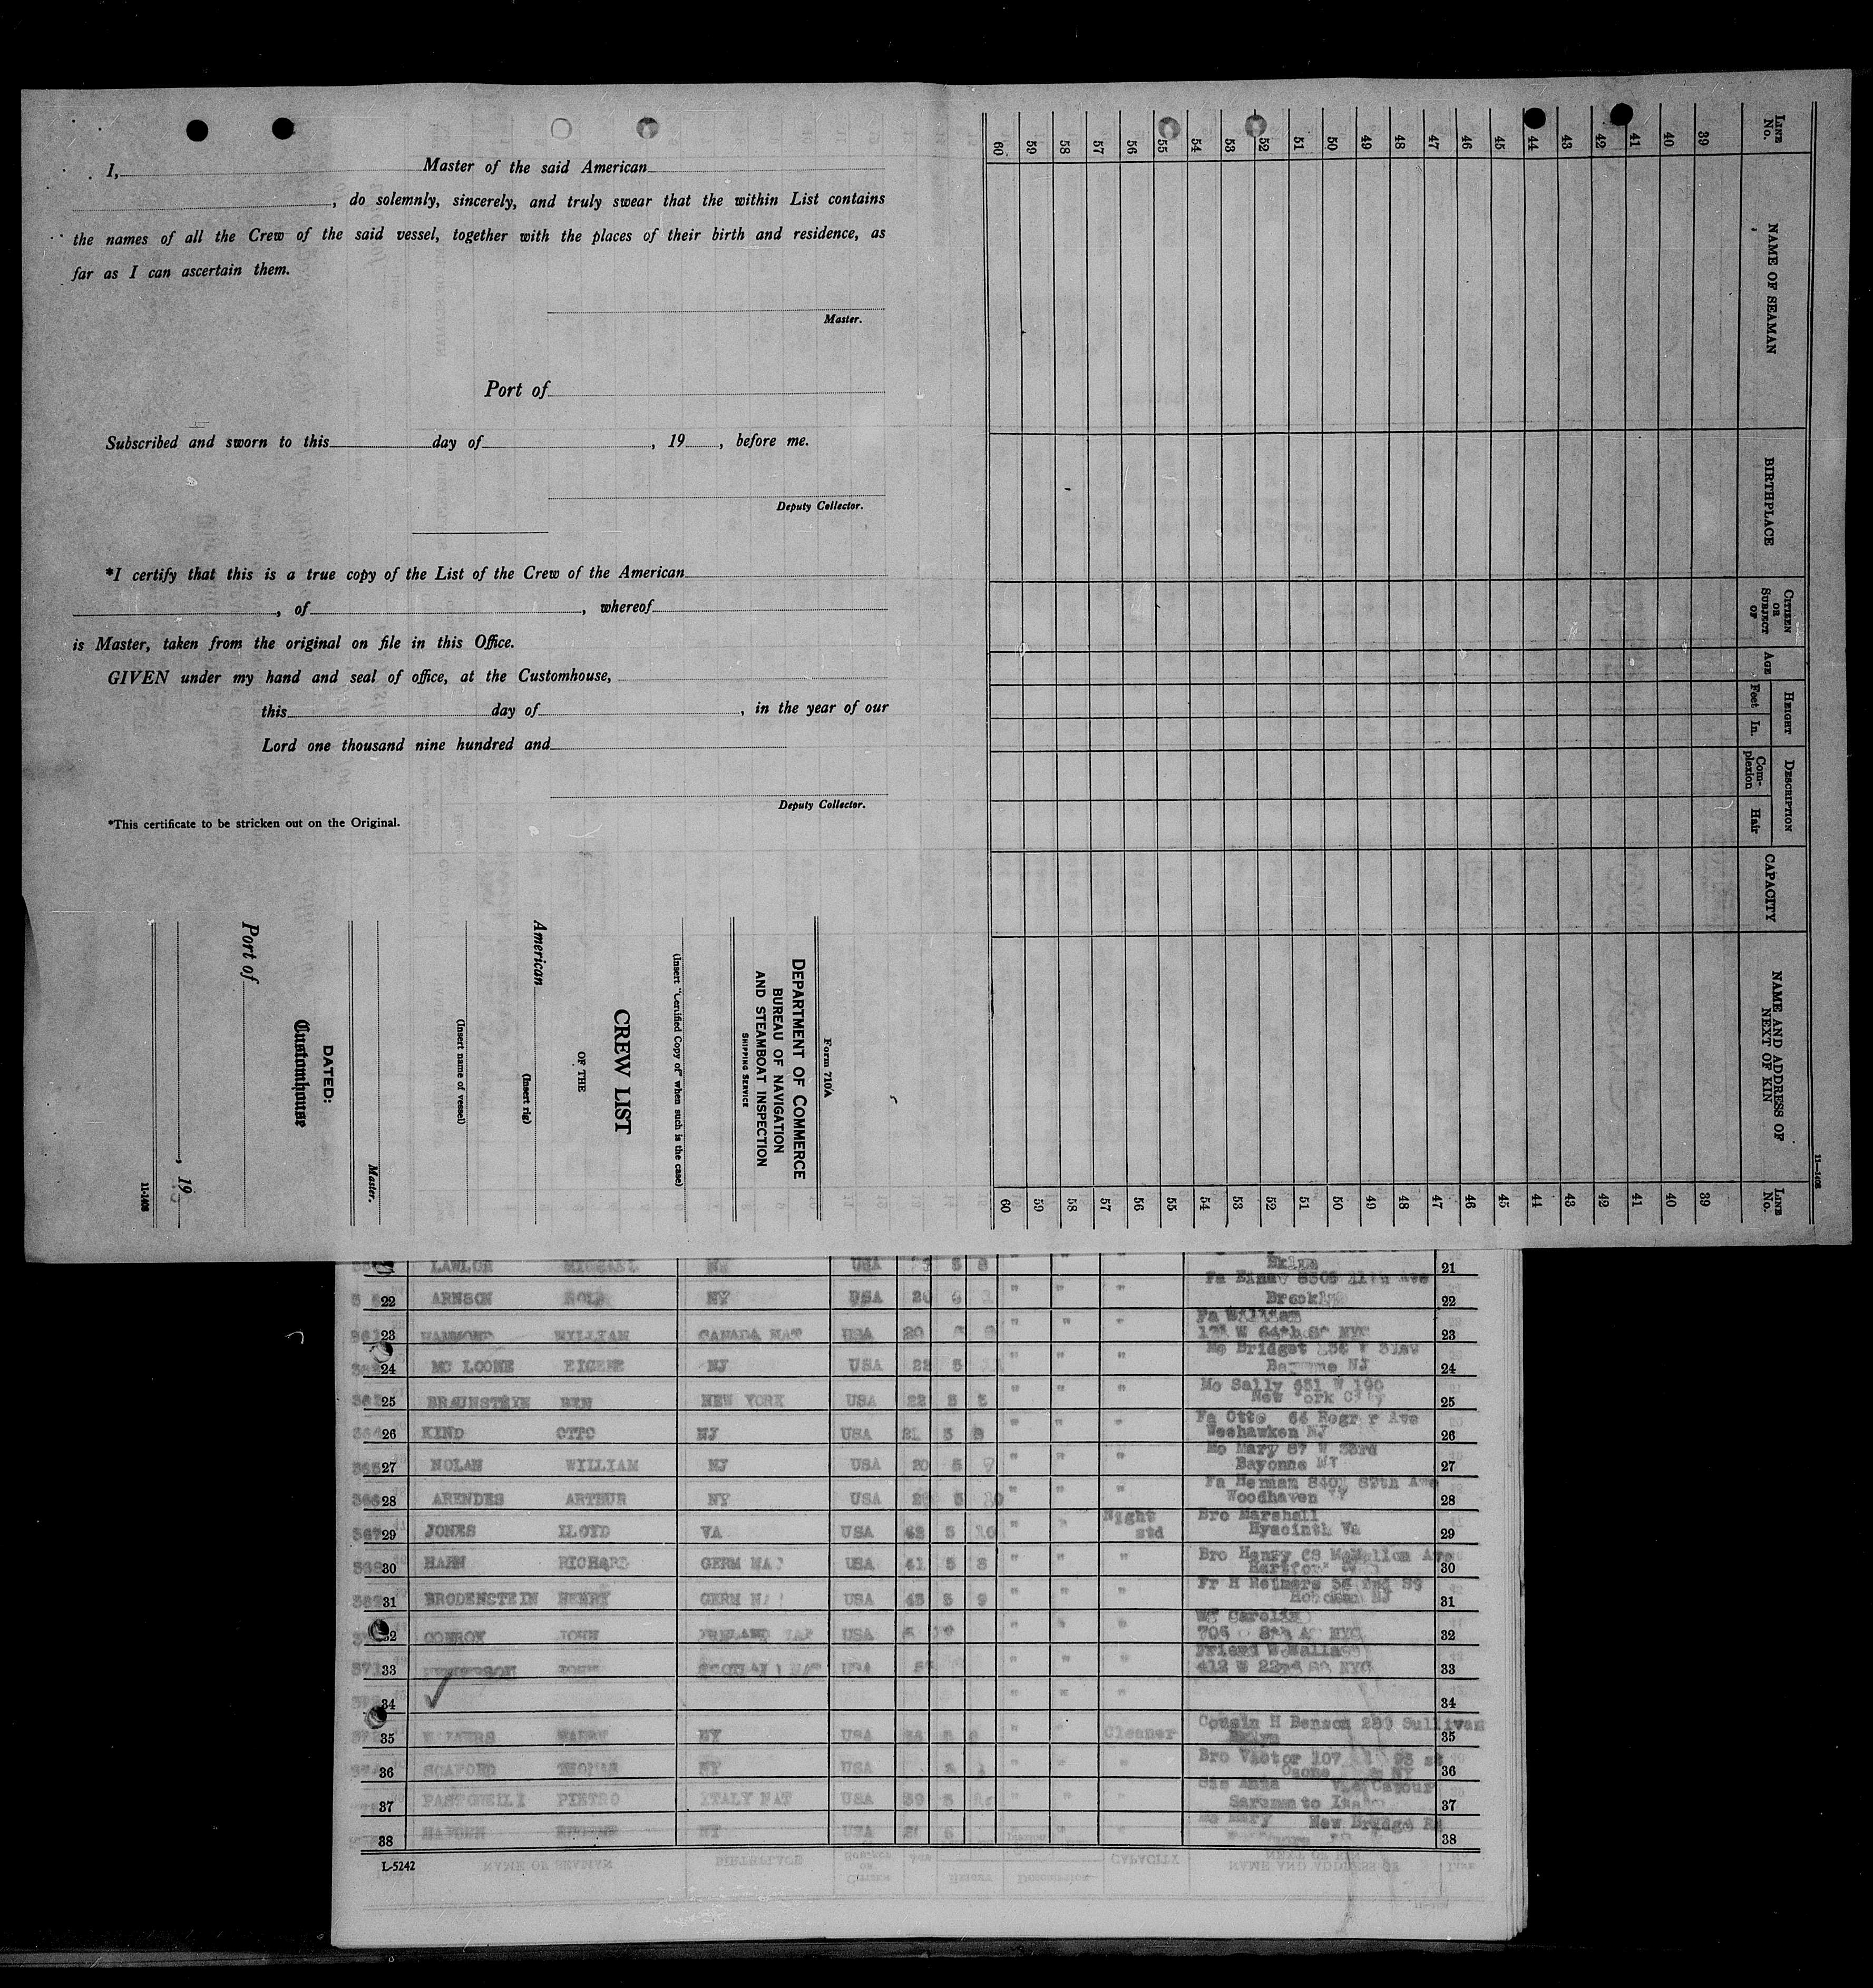 I, Master of the said American
, do solemnly, sincerely, and truly swear that the within List contains
the names of all the Crew of the said vessel, together with the places of their birth and residence, as
far as I can ascertain them.
Master.
Port of
Subscribed and sworn to this day of , 19 , before me.
Deputy Collector.
*I certify that this is a true copy of the List of the Crew of the American
, of , whereof
is Master, taken from the original on file in this Office.
GIVEN under my hand and seal of office, at the Customhouse,
this day of , in the year of our
Lord one thousand nine hundred and
Deputy Collector.
*This certificate to be stricken out on the Original.
Form 710A
DEPARTMENT OF COMMERCE
BUREAU OF NAVIGATION
AND STEAMBOAT INSPECTION
SHIPPING SERVICE
(Insert "Certified Copy of" when such is the case)
CREW LIST
OF THE
American
(Insert rig)
(Insert name of vessel)
Master.
DATED:
Customhouse
Port of
, 19
11-1408
11-1408
LINE No. NAME OF SEAMAN BIRTHPLACE CITIZEN OR SUBJECT OF AGE HEIGHT Feet In. DESCRIPTION Complexion Hair CAPACITY NAME AND ADDRESS OF NEXT OF KIN LINE No.
39 39
40 40
41 41
42 42
43 43
44 44
45 45
46 46
47 47
48 48
49 49
50 50
51 51
52 52
53 53
54 54
55 55
56 56
57 57
58 58
59 59
60 60
LAWLOR MICHAEL NY USA 5 8 " " " Bklyn 21
22 ARNSON NY USA 20 " " " Brooklyn 22
23 HAMMOND WILLIAM CANADA NAT USA 20 " " " Fa William W 64th St NYC 23
24 MC LOONE EIGENE NJ USA 22 5 " " " Mo Bridget Bayonne NJ 24
25 BRAUNSTEIN BEN NEW YORK USA 22 5 5 " " " Mo Sally 651 W 190 New York City 25
26 KIND OTTO NJ USA 21 5 9 " " " Fa Otto 64 Ave Weehawken NJ 26
365 27 NOLAN WILLIAM NJ USA 20 5 9 " " " Mo Mary 87 W 33rd Bayonne NJ 27
366 28 ARENDES ARTHUR NY USA 5 10 " " " Fa Herman 8401 87th Ave Woodhaven NY 28
367 29 JONES LLOYD VA USA 42 5 10 " " Night std Bro Marshall Hyacinth Va 29
368 30 HAHN RICHARD GERM NAT USA 41 5 8 " " " Bro Henry Ave Hartford 30
31 BRODENSTEIN HENRY GERM NAT USA 43 5 9 " " " Fr H Reimers Hoboken NJ 31
32 CONROY JOHN IRELAND NAT USA 5 " " " Wf Carolin 705 8th Av NYC 32
33 HENDERSON JOHN SCOTLAND NAT USA " " " Friend W Wallace 412 W 22nd St NYC 33
34 ✓ " " " 34
35 HARRY NY USA " " Cleaner Cousin H Benson Sullivan Bklyn 35
36 SCAFORD THOMAS NY USA " " " Bro Victor 107 Ozone NY 36
37 PASTORELLI PIETRO ITALY NAT USA 39 5 " " " Sis Anna Via Cavour 37
38 HAYDEN EUGENE NY USA " " " Mo Mary New Bridge Rd 38
L-5242